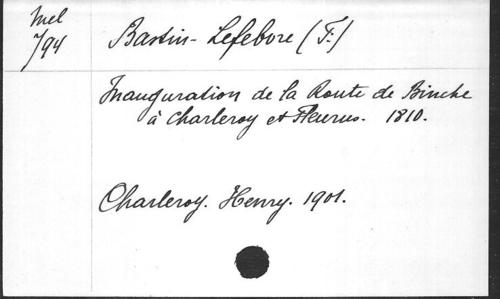 Mel
794
Bastin-Lefebvre (F.)
Inauguration de la Route de Binche
à Charleroy et Fleurus. 1810.
Charleroy. Henry. 1901.